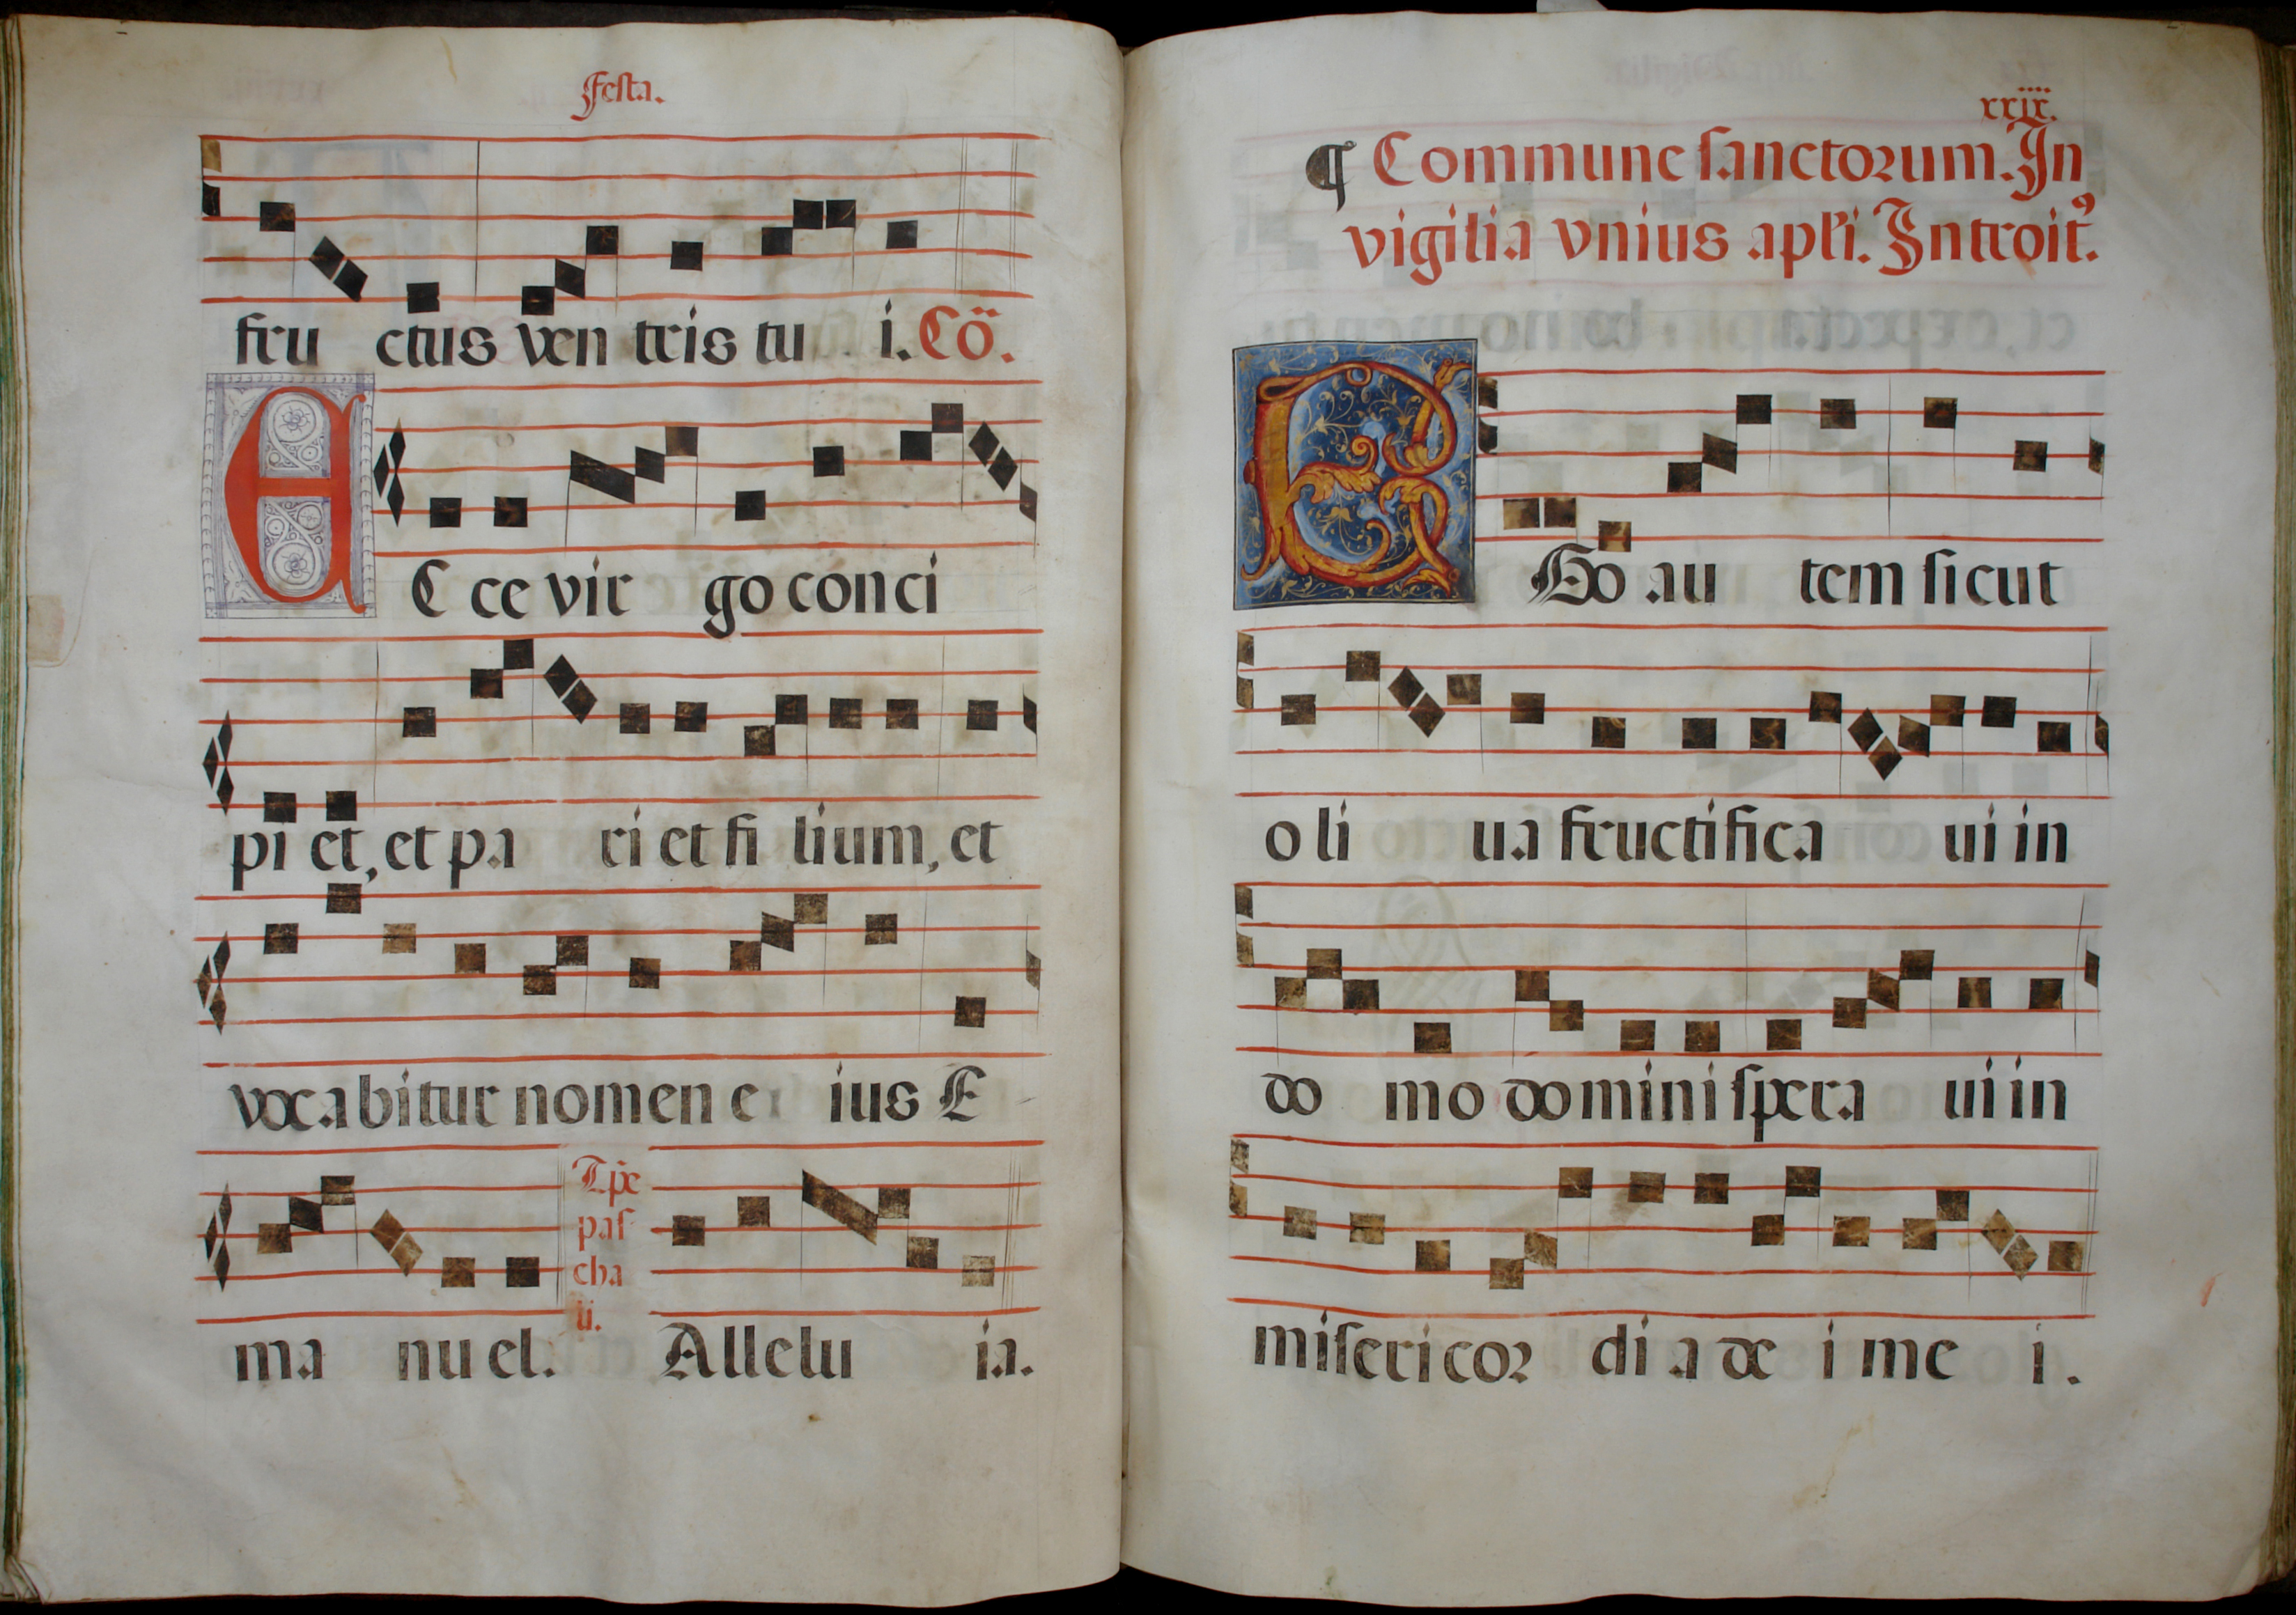 Festa.
fru ctus ven tris tu i. Cõ.
E C ce vir go conci
pi et, et pa ri et fi lium, et
vocabitur nomen e ius E
ma nu el. T.pe pas cha li. Allelu ia.
xxix.
¶ Commune sanctorum. In
vigilia vnius apłi. Introitꝰ.
E Go au tem sicut
o li ua fructifica ui in
do mo domini spera ui in
misericor di a de i me i.